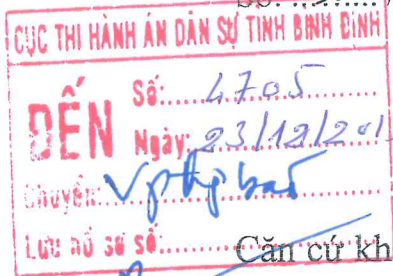 Số:
CỤC THI HÀNH ÁN DÂN SỰ TỈNH BÌNH ĐỊNH
ĐẾN
Số:.....4705.....
Ngày: 23/12/201
Chuyển:
Lưu hồ sơ số:.....
Căn cứ kh